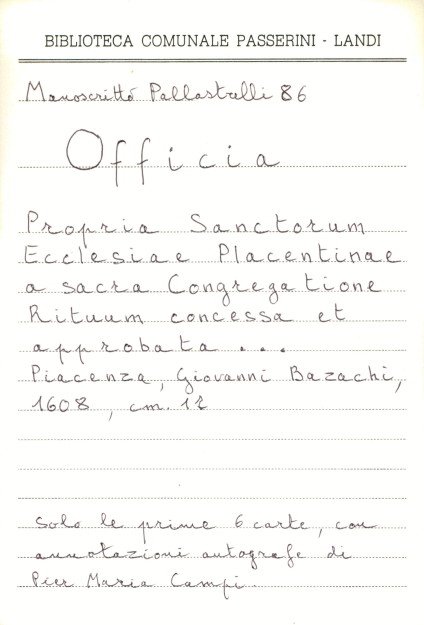 BIBLIOTECA COMUNALE PASSERINI - LANDI
Manoscritto Pallastrelli 86
Officia
Propria Sanctorum
Ecclesiae Placentinae
a sacra Congregatione
Rituum concessa et
approbata ...
Piacenza, Giovanni Bazachi,
1608, cm. 12
Solo le prime 6 carte, con
annotazioni autografe di
Pier Maria Campi.